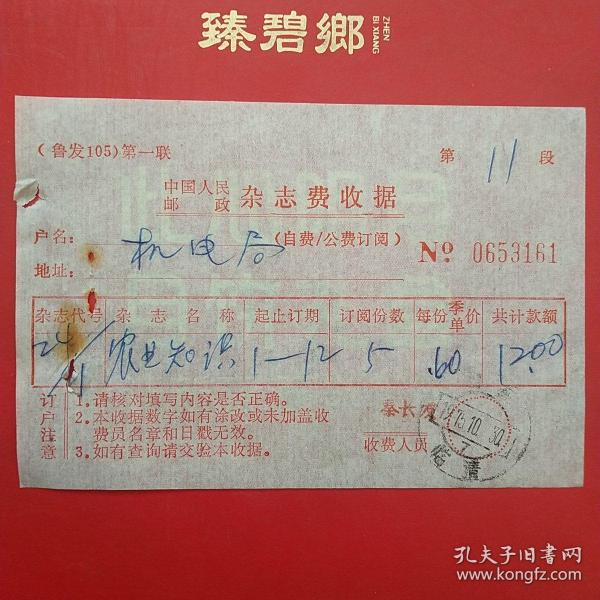 臻碧鄉
ZHEN
BI XIANG
(鲁发105)第一联
第 11 段
中国人民
邮政
杂志费收据
户名: 机电局 (自费/公费订阅)
地址:
Nº 0653161
杂志代号 杂志名称 起止订期 订阅份数 每份季单价 共计款额
24/ 农业知识 1—12 5 .60 12.00
订户注意
1.请核对填写内容是否正确。
2.本收据数字如有涂改或未加盖收
费员名章和日戳无效。
3.如有查询请交验本收据。
收费人员
孔夫子旧书网
www.kongfz.com